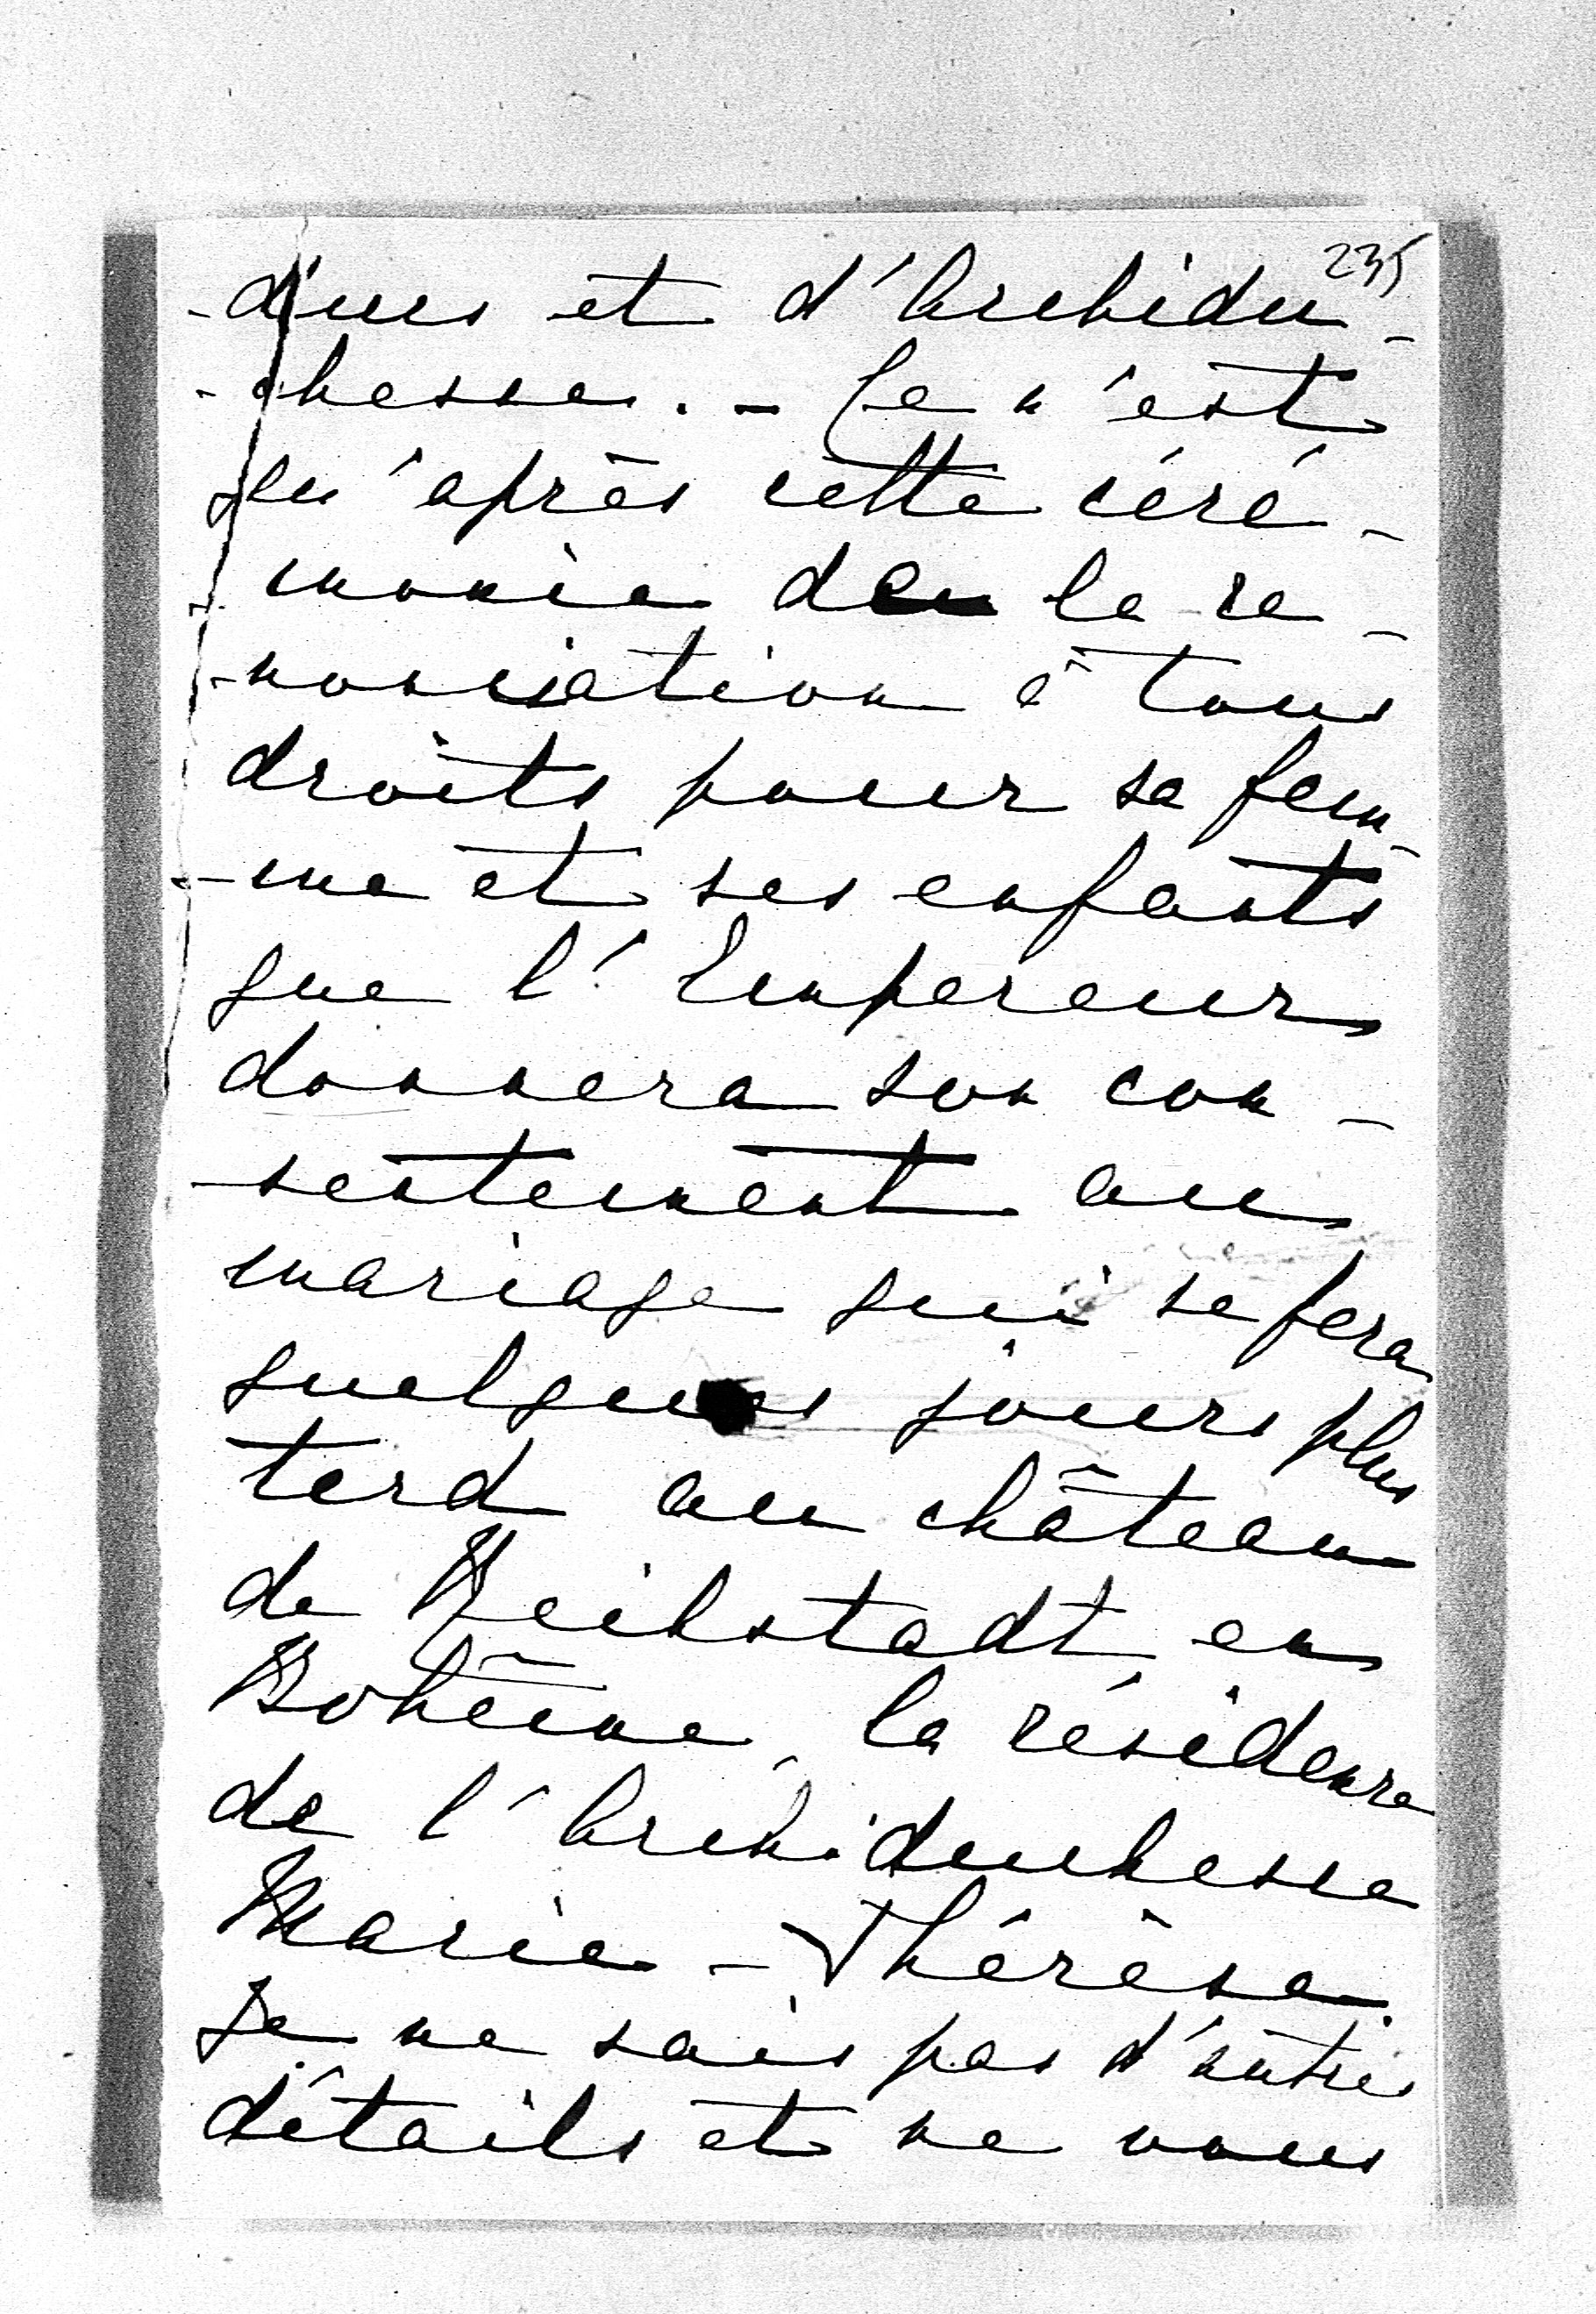 235
-ducs et d'Archidu-
-chesses. - Ce n'est
qu'après cette céré-
-monie de la re-
-nonciation à tous
droits pour sa fem-
-me et ses enfants
que l'Empereur
donnera son con-
-sentement au
mariage qui se fera
quelques jours plus
tard au château
de Reichstadt en
Bohême, la résidence
de l'Archiduchesse
Marie-Thérèse.
Je ne sais pas d'autres
détails et ne vous